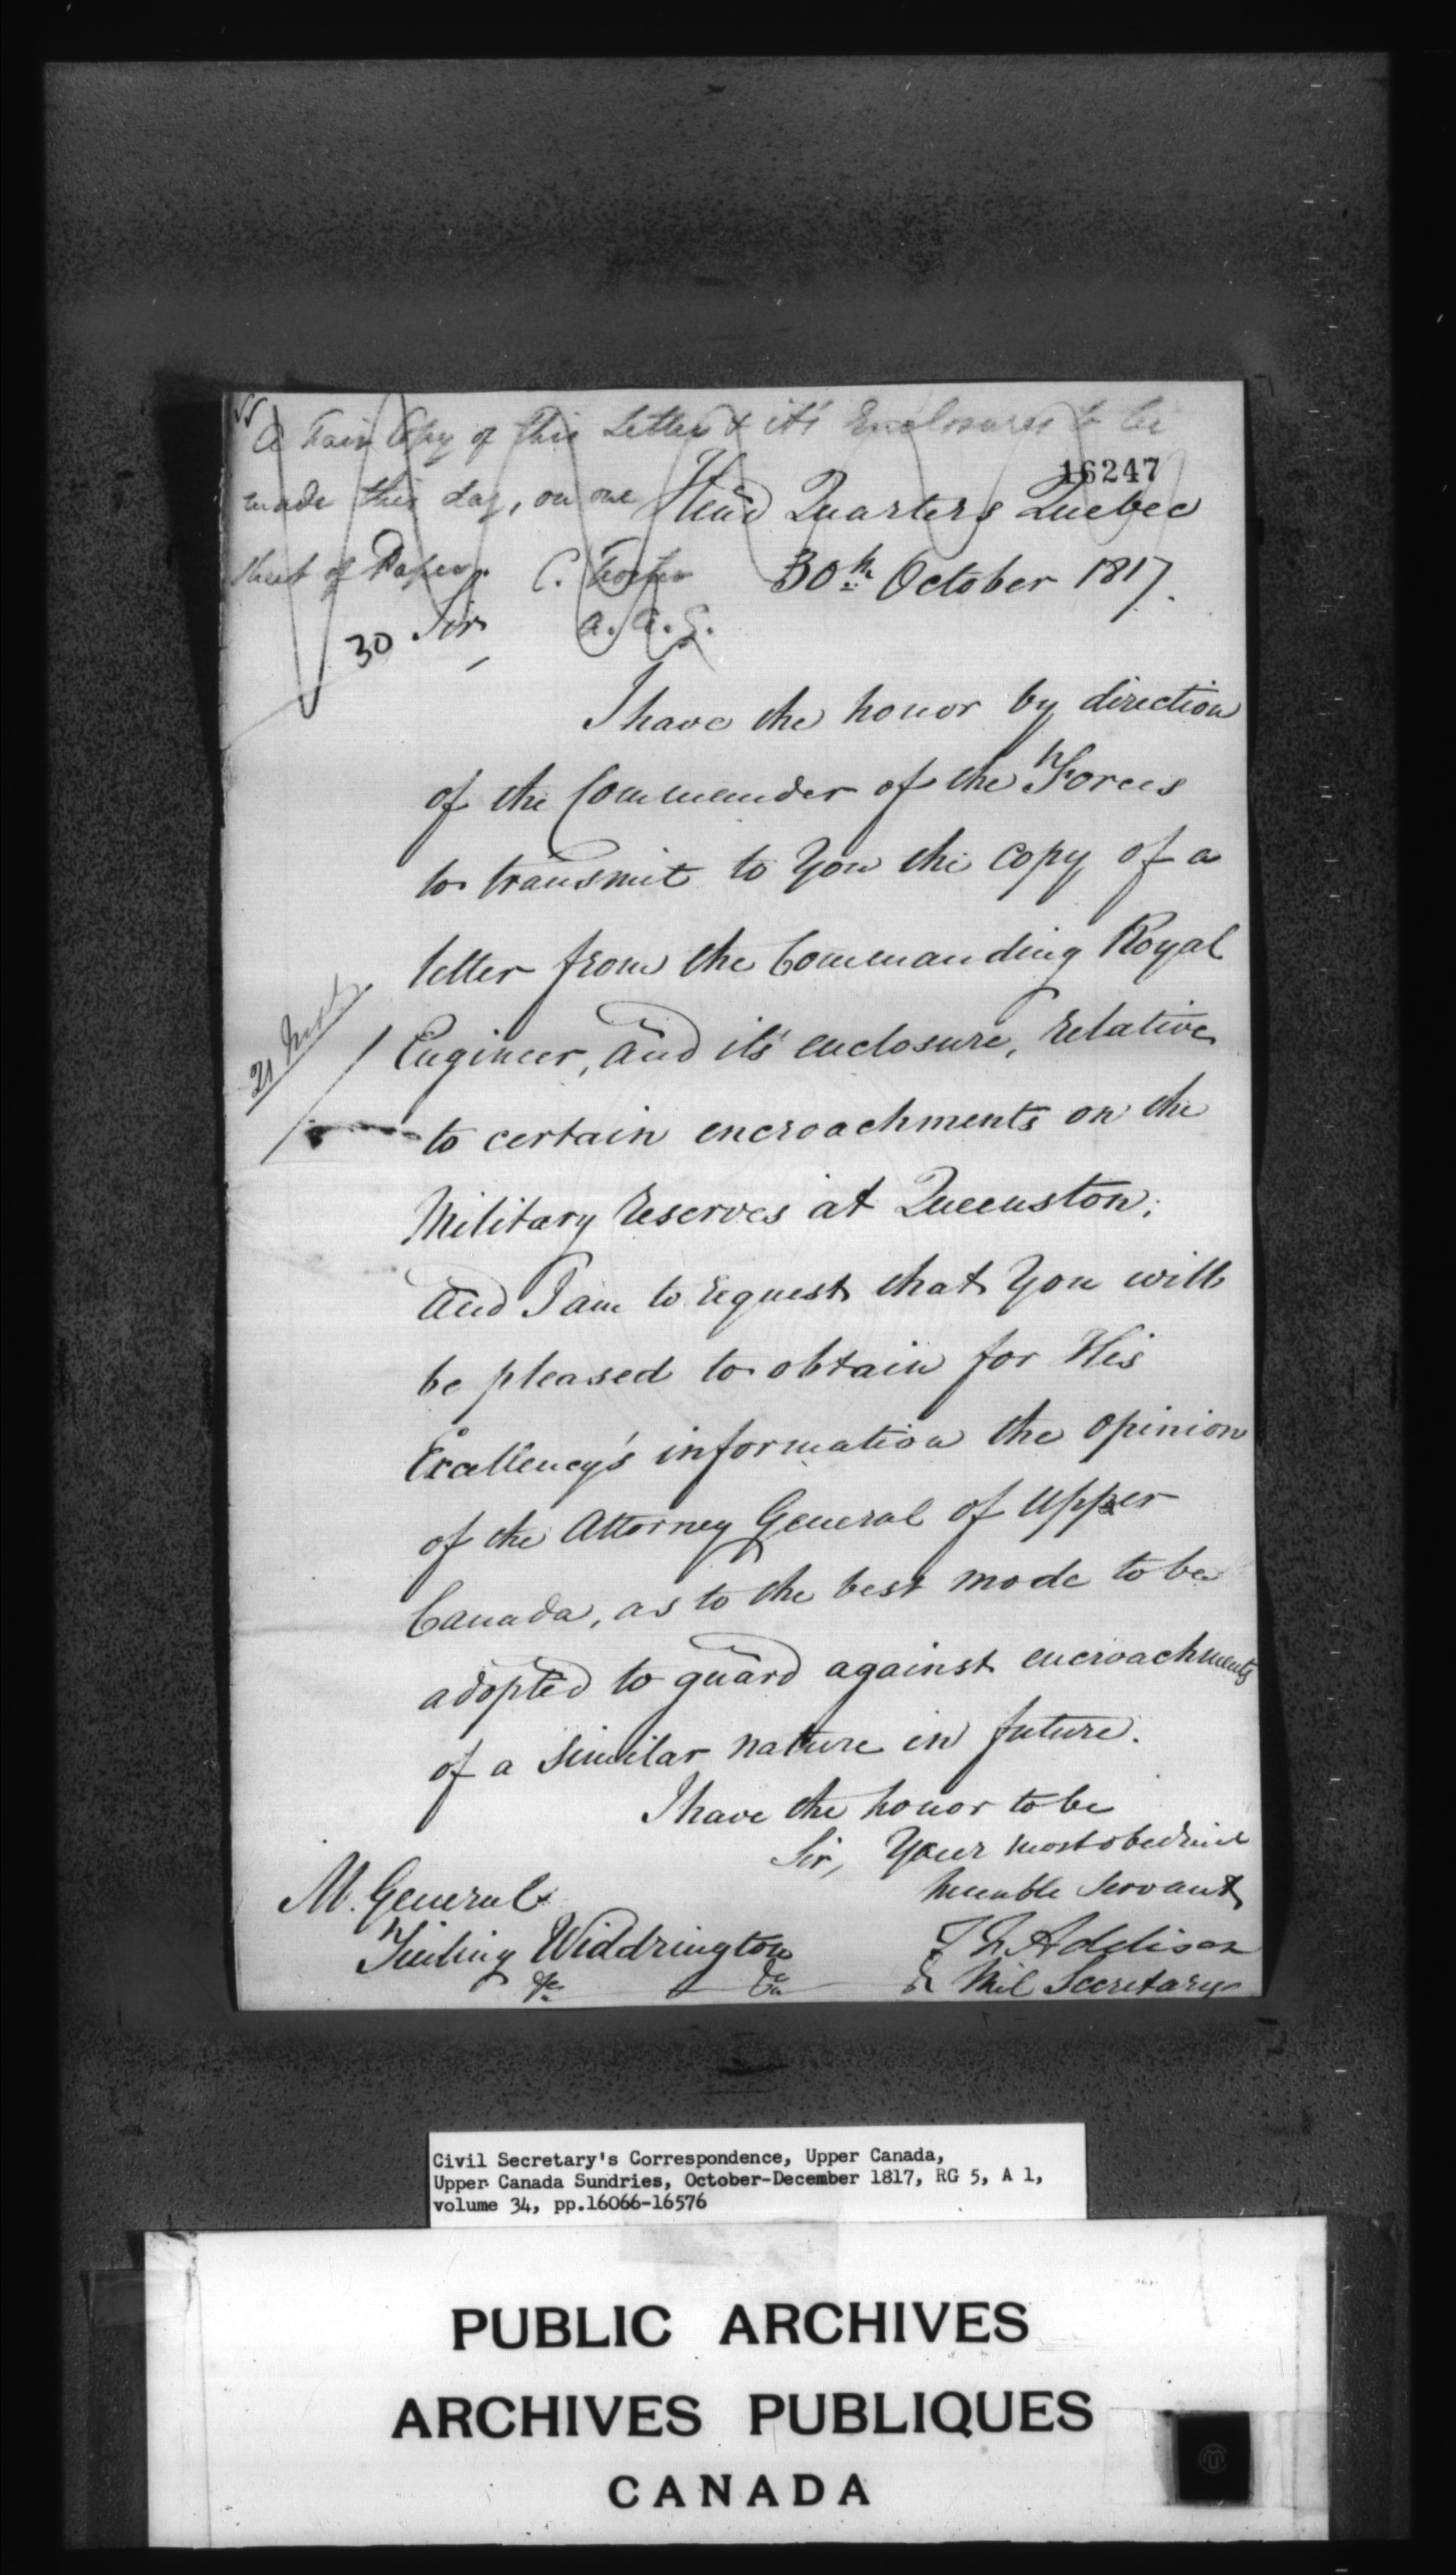 A Fair Copy of this Letter & it's Enclosures to be
made this day, on one
sheet of Paper.
C. Foster
A. A. G.
16247
Head Quarters Quebec
30th October 1817.
30
Sir
I have the honor by direction
of the Commander of the Forces
to transmit to You the copy of a
letter from the Commanding Royal
21 Inst.
Engineer, and its' enclosure, relative
to certain encroachments on the
Military reserves at Queenston;
and I am to request that You will
be pleased to obtain for His
Excellency's information the opinion
of the Attorney General of Upper
Canada, as to the best mode to be
adopted to guard against encroachments
of a similar nature in future.
I have the honor to be
Sir, Your most obedient
humble Servant
M. General
Widdrington
&c &c
Addison
Mil Secretary
Civil Secretary's Correspondence, Upper Canada,
Upper Canada Sundries, October-December 1817, RG 5, A 1,
volume 34, pp.16066-16576
PUBLIC ARCHIVES
ARCHIVES PUBLIQUES
CANADA